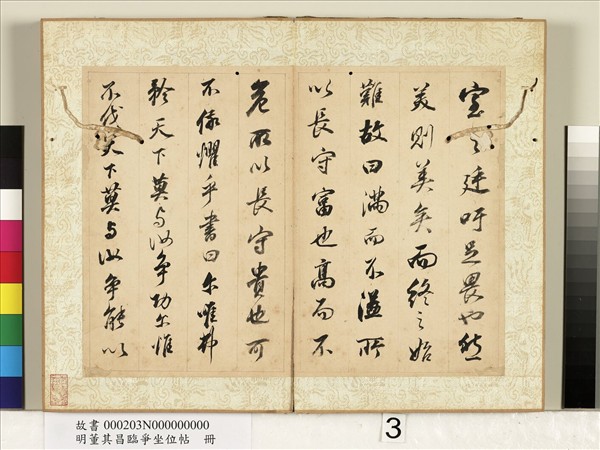 室之廷吁足畏也然
美則美矣而終之始
難故曰滿而不溢所
以長守富也高而不
危所以長守貴也可
不儆懼乎書曰尔唯弗
矜天下莫与汝爭功尔惟
不伐天下莫与汝爭能以
故書 000203N000000000
明董其昌臨爭坐位帖 冊
3